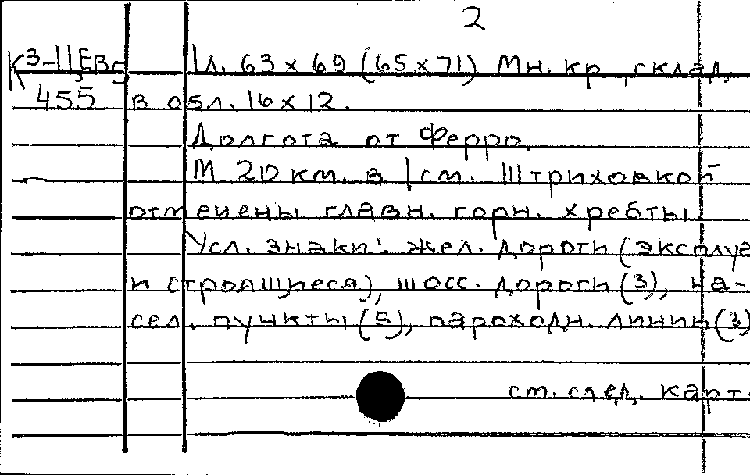 2
К 3-Ц,Евг 1 л. 63 x 69 (65 x 71) Мн. кр., склад.
455 в обл. 16 x 12.
Долгота от Ферро.
М 20 км. в 1 см. Штриховкой
отмечены главн. горн. хребты.
Усл. знаки: жел. дороги (эксплуа
и строящиеся), шосс. дороги (3), на-
сел. пункты (5), пароходн. линии (3)
см. след. карт.